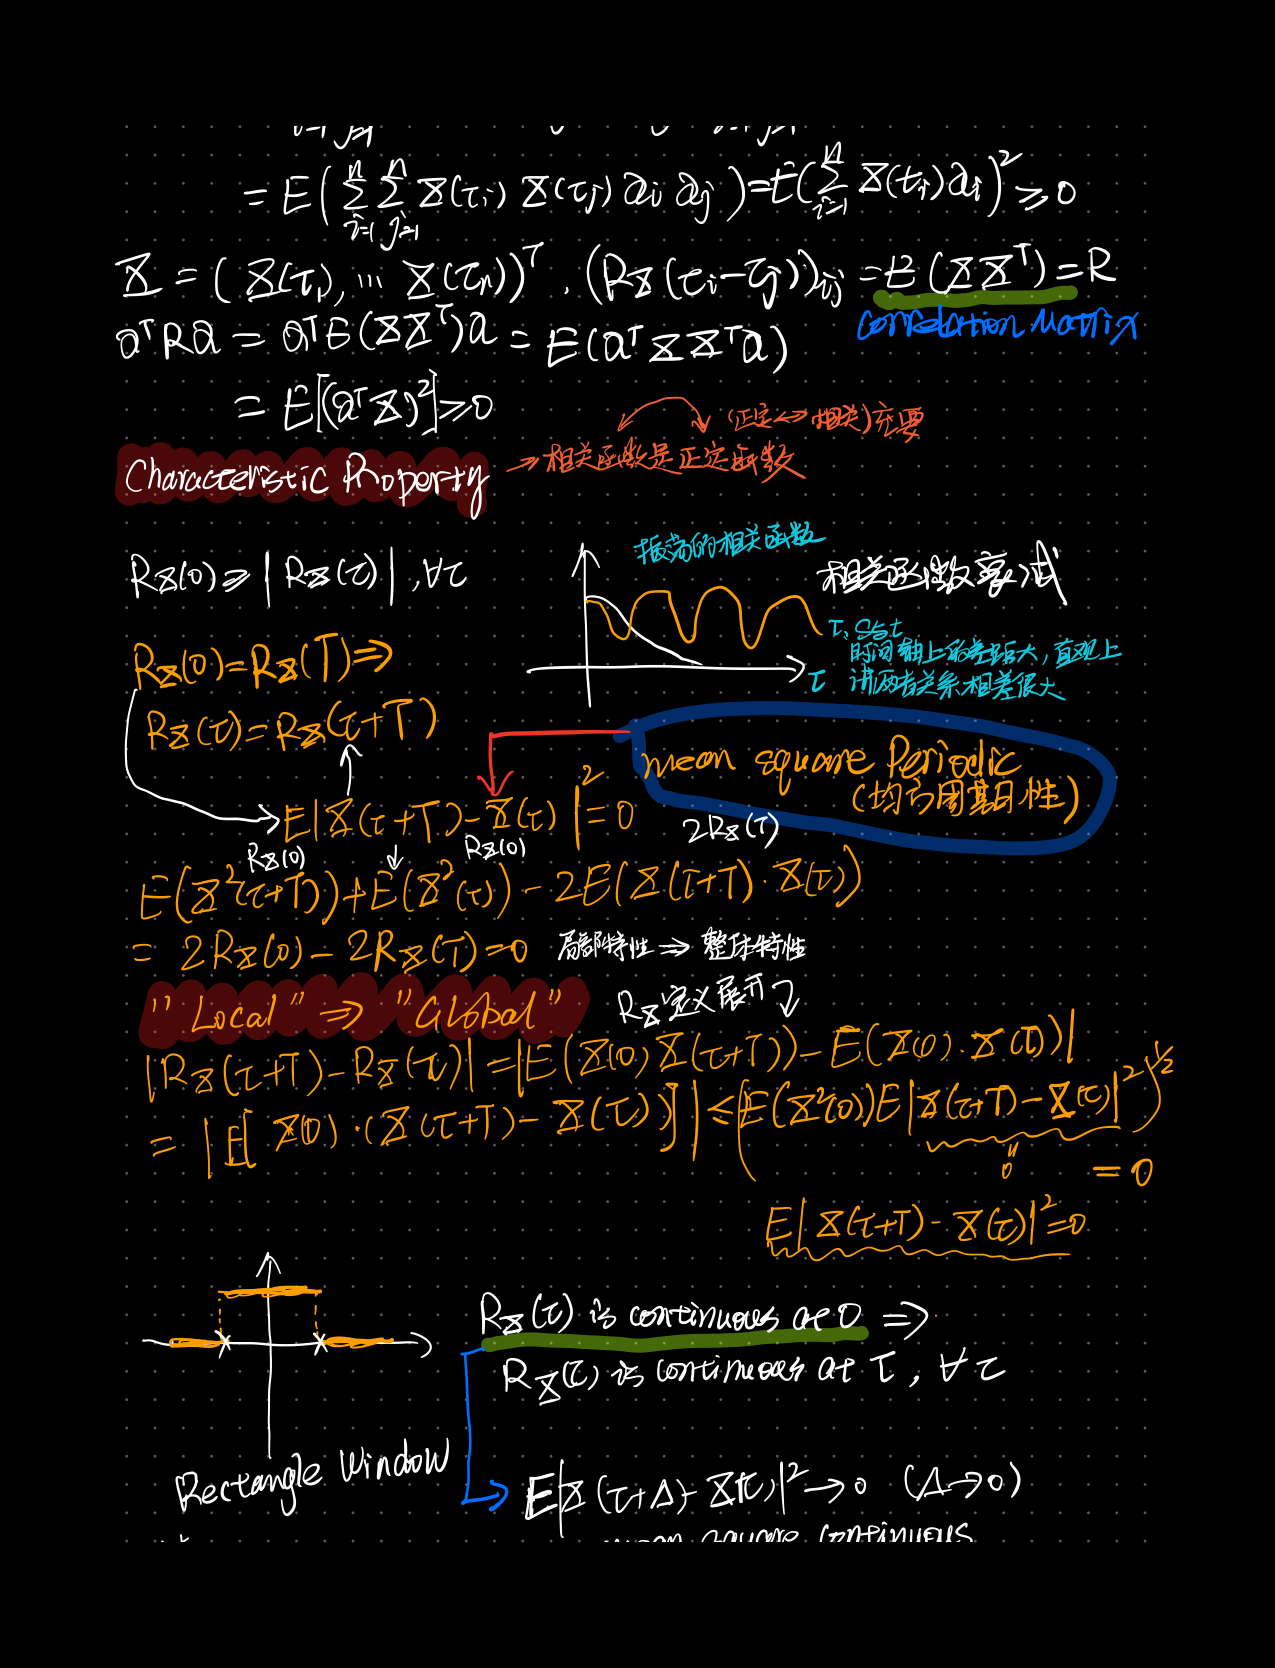 = E(∑_{i=1}^{n} ∑_{j=1}^{n} X(τi) X(τj) ai aj) = E(∑_{i=1}^{n} X(ti) ai)² ≥ 0
X = (X(τ1), ... X(τn))ᵀ. (R_X(τi-τj))ij = E(XXᵀ) = R
Correlation Matrix
aᵀRa = aᵀE(XXᵀ)a = E(aᵀXXᵀa)
= E[(aᵀX)²] ≥ 0
(正定↔相关)充要
Characteristic Property → 相关函数是正定函数
振荡的相关函数
R_X(0) ≥ |R_X(τ)|, ∀τ
相关函数衰减
R_X(0) = R_X(T) ⇒
时间轴上的差距大,直观上
τ 讲两者关系相差很大
R_X(τ) = R_X(τ+T)
mean square Periodic
(均方周期性)
E|X(τ+T) - X(τ)|² = 0
R_X(0) R_X(0) 2R_X(T)
E(X²(τ+T)) + E(X²(τ)) - 2E(X(τ+T)·X(τ))
= 2R_X(0) - 2R_X(T) = 0 局部特性 ⇒ 整体特性
"Local" ⇒ "Global" R_X定义展开
|R_X(τ+T) - R_X(τ)| = |E(X(0)X(τ+T)) - E(X(0)·X(τ))|
= |E[X(0)·(X(τ+T) - X(τ))]| ≤ (E(X²(0))E|X(τ+T) - X(τ)|²)^{1/2}
0 = 0
E|X(τ+T) - X(τ)|² = 0
R_X(τ) is continuous at 0 ⇒
R_X(τ) is continuous at τ, ∀τ
Rectangle Window
E|X(τ+Δ) - X(τ)|² → 0 (Δ→0)
mean square continuous